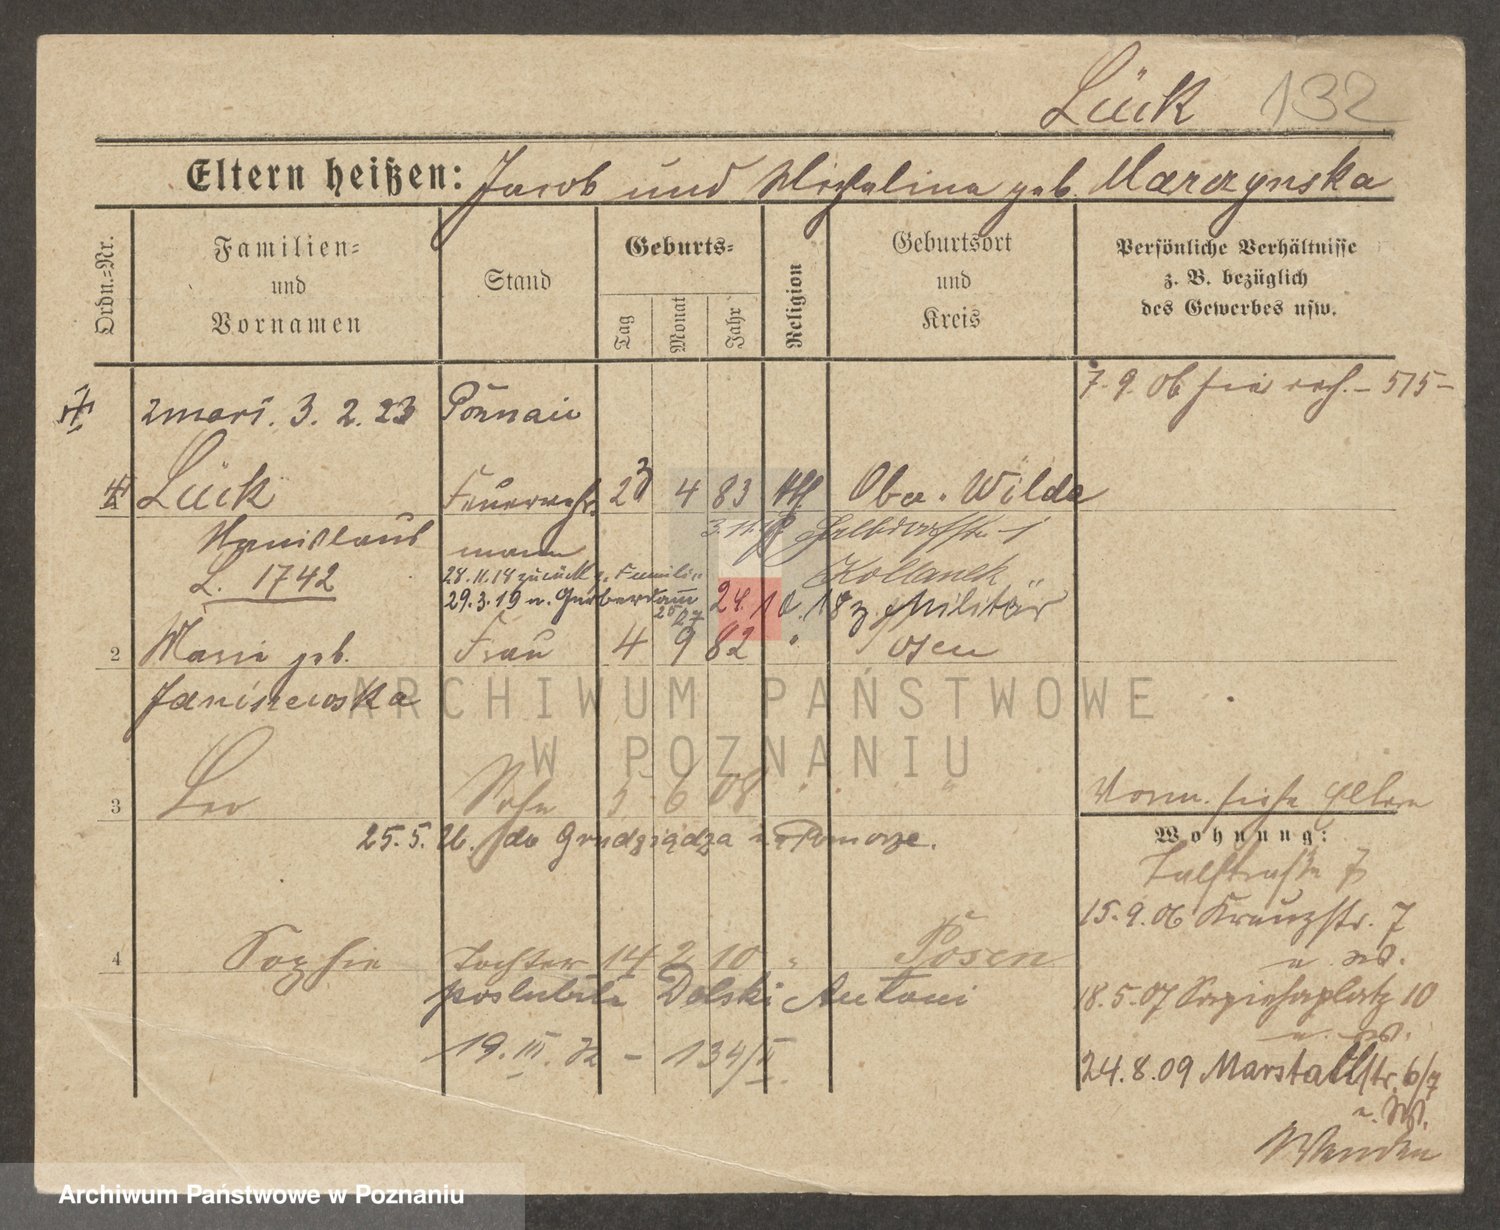 Lück 132
Eltern heißen: Jacob und Michalina geb. Marczynska
Ordn.=Nr.
Familien=
und
Vornamen
Stand
Geburts=
Tag
Monat
Jahr
Religion
Geburtsort
und
Kreis
Persönliche Verhältnisse
z. B. bezüglich
des Gewerbes usw.
7. 9. 06 - 575 -
zmarł. 3. 2. 23 Poznań
Lück Feuerwehr 23 4 83 kth Ober Wilda
Stanislaus mann
L. 1742
28.11.18 zurück z. Familie
29.3.19 n.
24. 10. 18 z. Militär
2 Marie geb. Frau 4 9 82 " Posen
Janiszewska
3 Leo Sohn 5 6 08 " " "
25. 5. do Grudziądza Pomorze.
Vorm. siehe Eltern
Wohnung:
Talstraße 7
15. 9. 06 Kreuzstr. 7
4 Sophie Tochter 14 2 10 " Posen
poslubiła Dolski Antoni
19. III. 32 - 134/II.
18. 5. 07 Sapiehaplatz 10
24. 8. 09 Marstallstr. 6/7
Wenden
ARCHIWUM PAŃSTWOWE
W POZNANIU
Archiwum Państwowe w Poznaniu